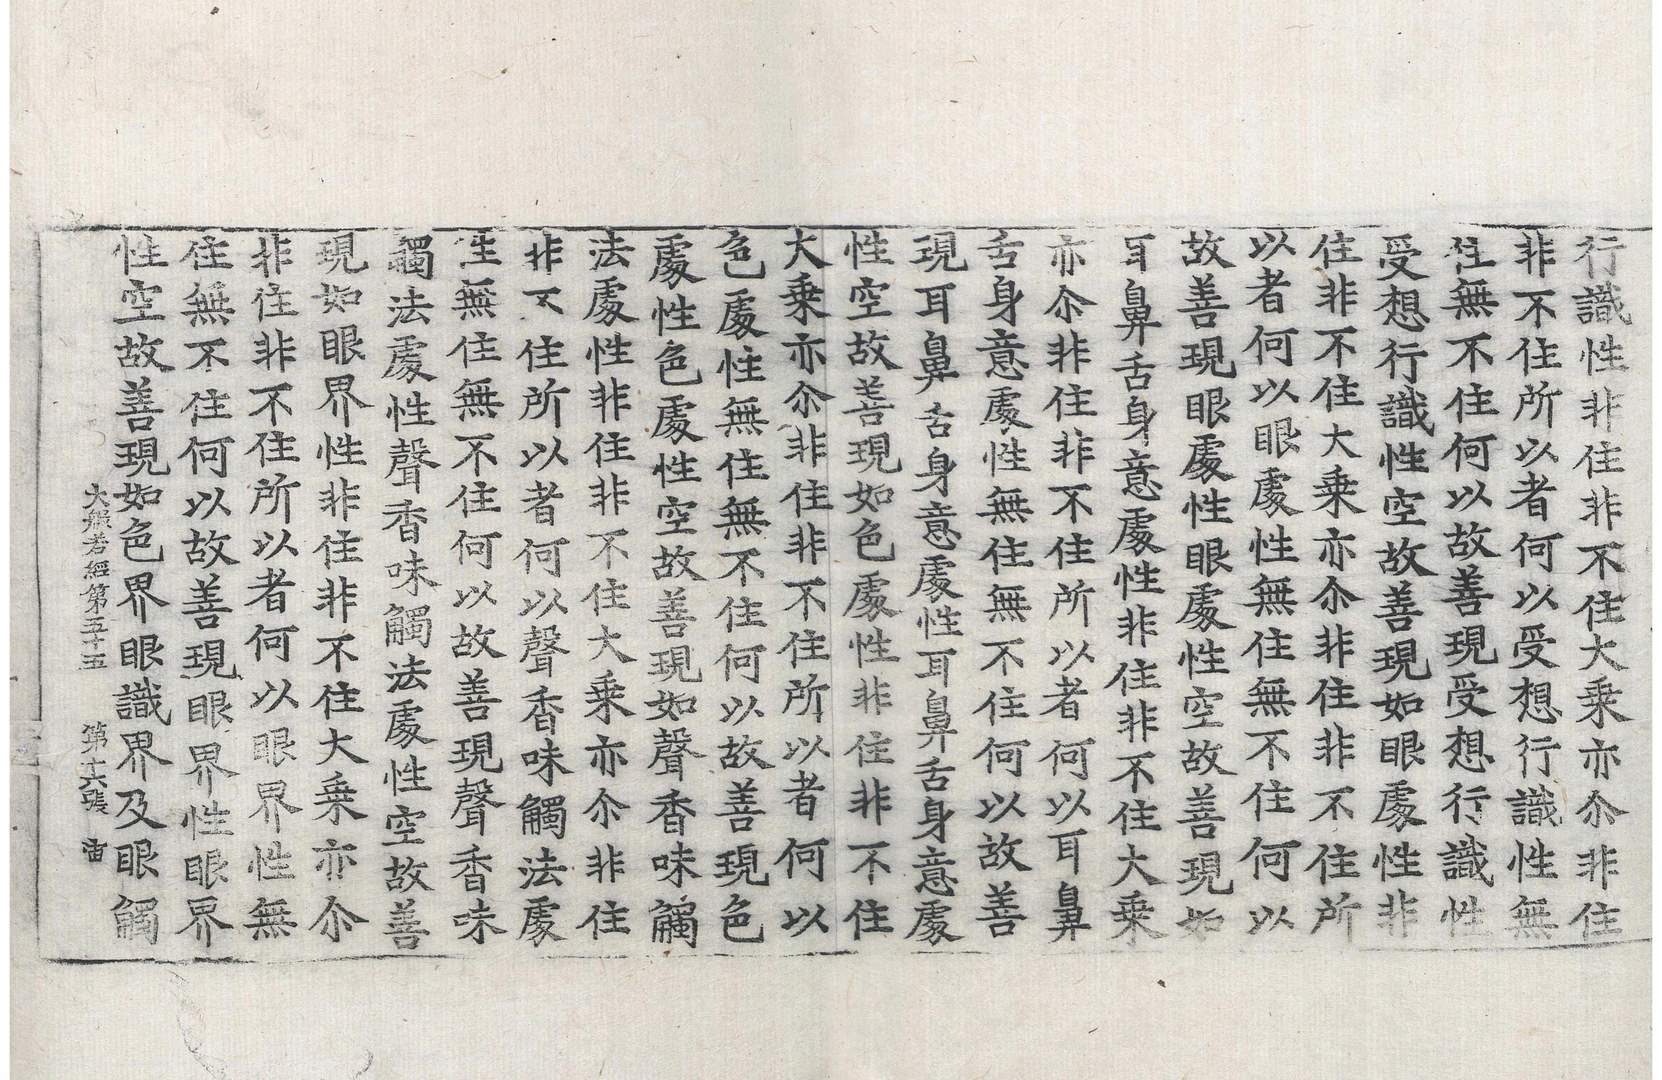 行識性非住非不住大乘亦尒非住
非不住所以者何以受想行識性無
住無不住何以故善現受想行識性
受想行識性空故善現如眼處性非
住非不住大乘亦尒非住非不住所
以者何以眼處性無住無不住何以
故善現眼處性眼處性空故善現如
耳鼻舌身意處性非住非不住大乘
亦尒非住非不住所以者何以耳鼻
舌身意處性無住無不住何以故善
現耳鼻舌身意處性耳鼻舌身意處
性空故善現如色處性非住非不住
大乘亦尒非住非不住所以者何以
色處性無住無不住何以故善現色
處性色處性空故善現如聲香味觸
法處性非住非不住大乘亦尒非住
非不住所以者何以聲香味觸法處
性無住無不住何以故善現聲香味
觸法處性聲香味觸法處性空故善
現如眼界性非住非不住大乘亦尒
非住非不住所以者何以眼界性無
住無不住何以故善現眼界性眼界
性空故善現如色界眼識界及眼觸
大般若經第五十五 第十六張 宙